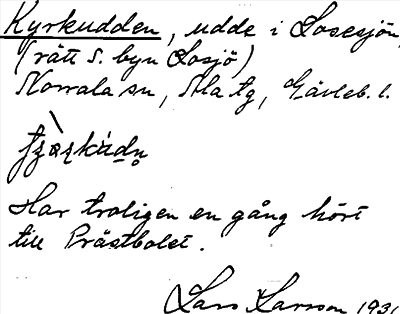 Kyrkudden, udde i Losesjön,
(rätt S. byn Losjö)
Norrala sn, Ala tg, Gävleb. l.
Har troligen en gång hört
till Prästbolet.
Lars Larsson 1931